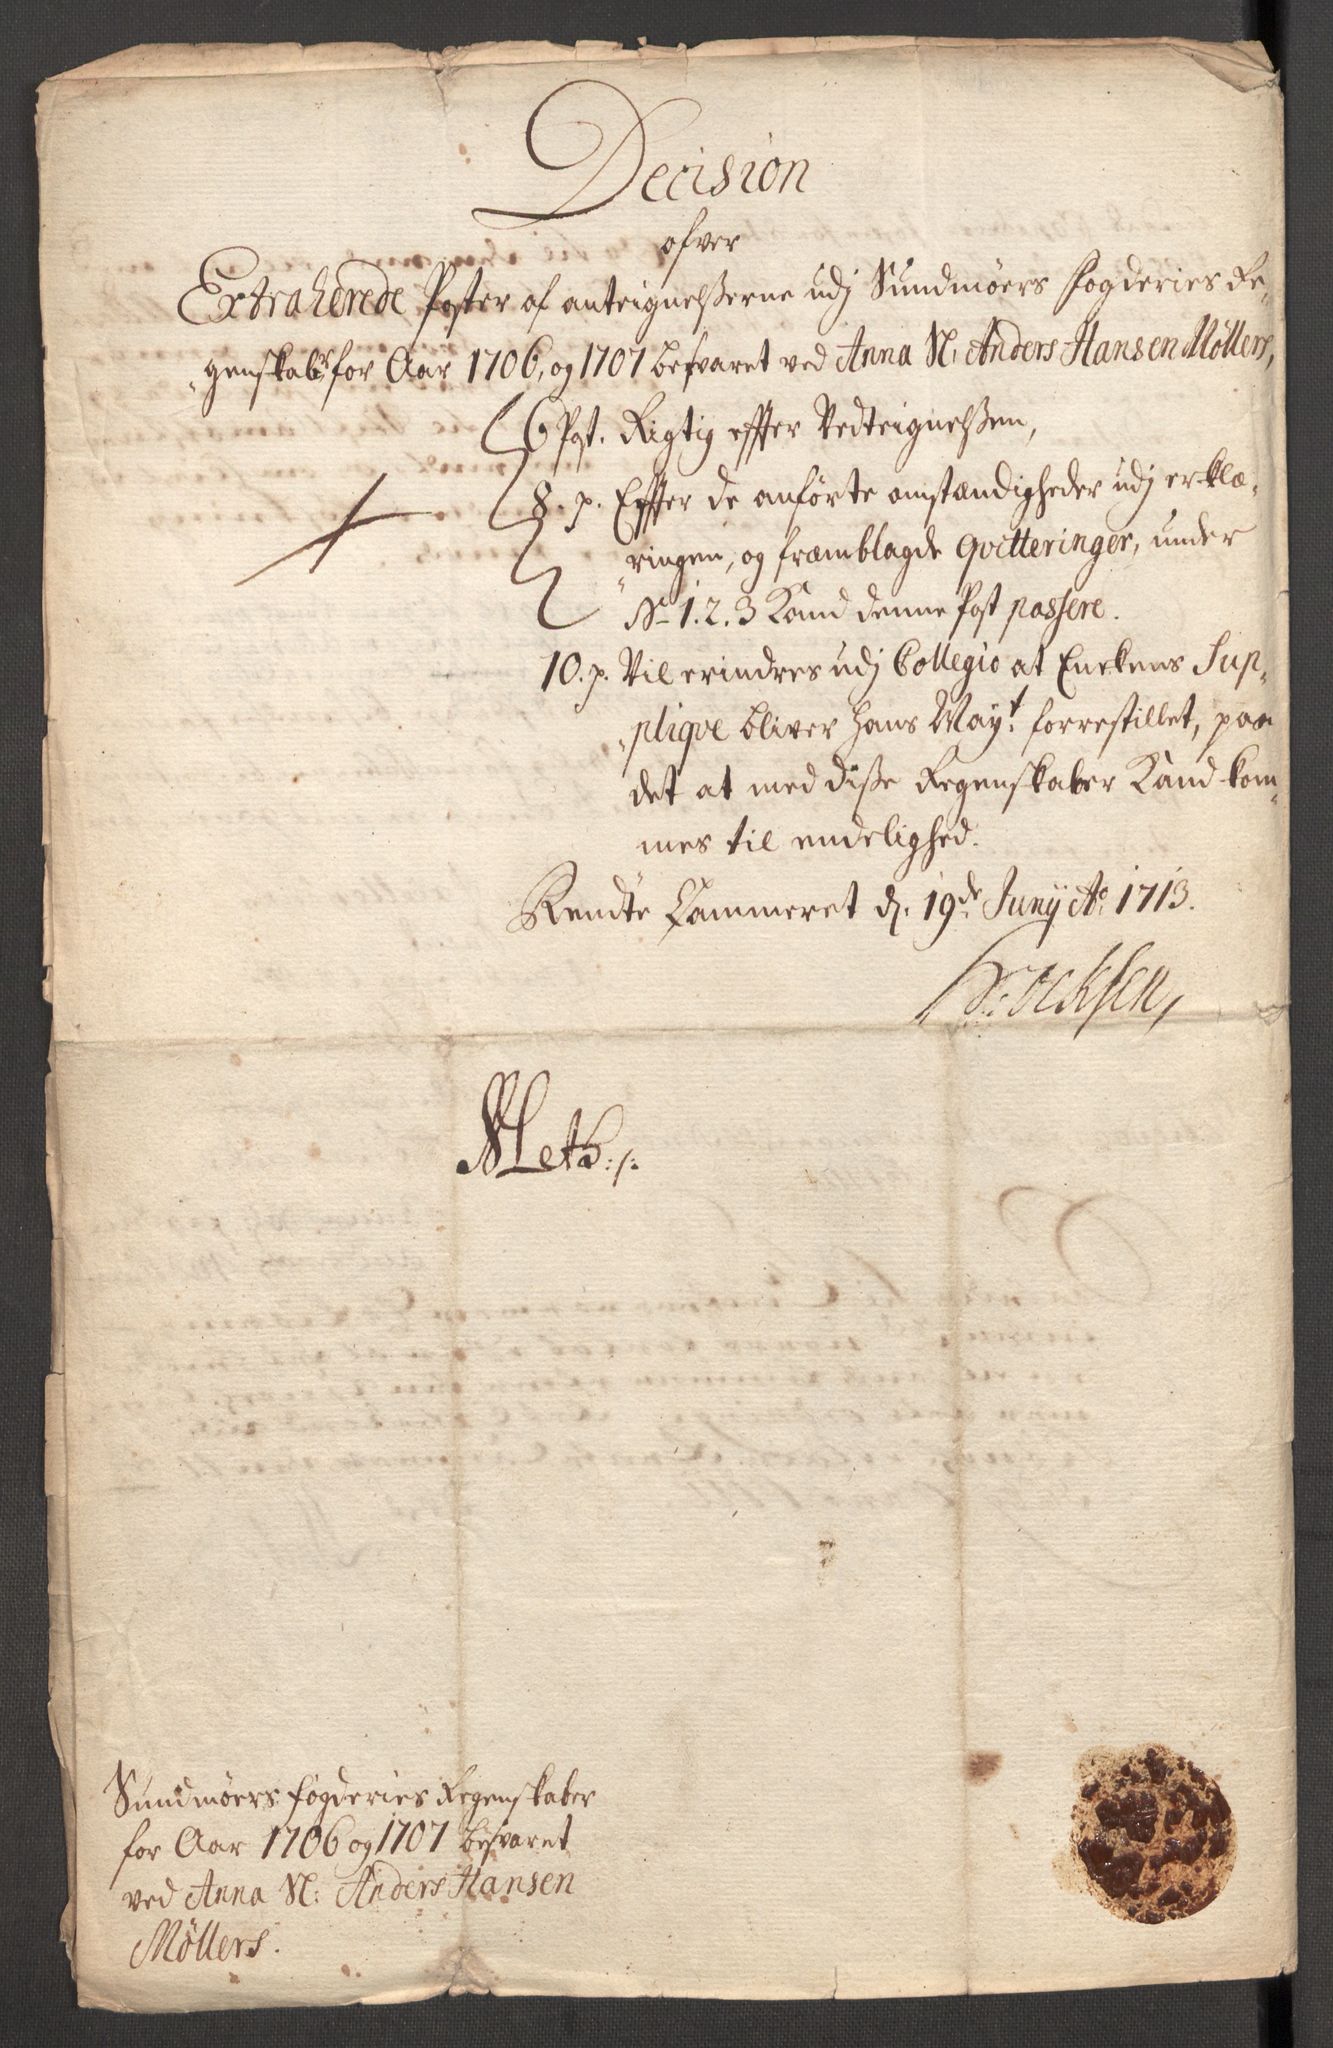 Decision
ofver
Extraherede Poster af anteignelßerne udj Sundmøers fogderies Re-
genskab for Aar 1706, og 1707 besvaret ved Anna Sl: Anders Hansen Møllers,
6 Post. Rigtig effter Vedteignelßen,
8. p. Effter de anførte omstændigheder udj erklæ-
ringen, og fræmblagde qvitteringer, under
No 1. 2. 3 Kand denne Post passere.
10. p. Vil erindres udj Collegio at Enckens Sup-
pliqve bliver Hans Mayt: forrestillet, paa
det at med diße Regenskaber Kand kom-
mes til endelighed.
Rendte Cammeret d: 19de Junij Ao 1713.
Sundmøers fogderies Regenskaber
for Aar 1706 og 1707 besvaret
ved Anna Sl: Anders Hansen
Møllers.